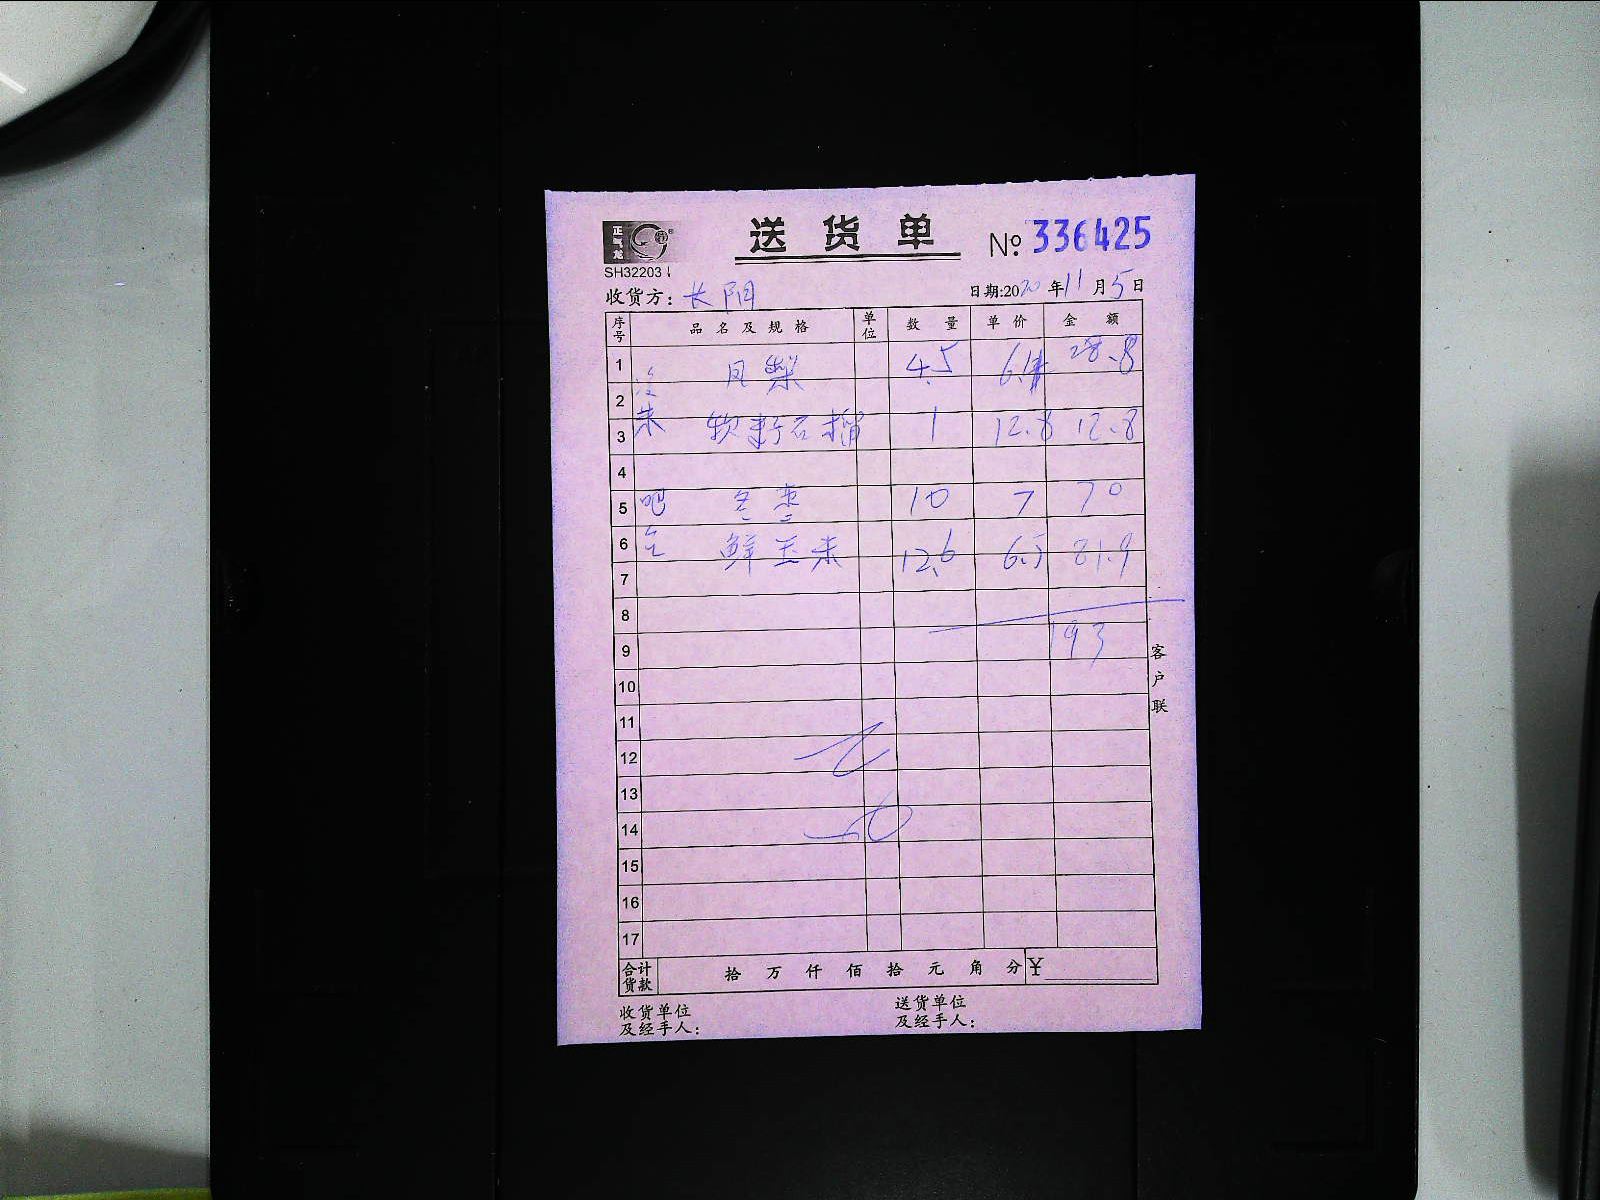 正气龙
送货单 No. 336425
SH32203
收货方: 长阳 日期:2020年11月5日
序号 品名及规格 单位 数量 单价 金额
1 凤梨 4.5 6.4 28.8
2
3 软籽石榴 1 12.8 12.8
4
5 吧 冬枣 10 7 70
6 鲜玉米 12.6 6.5 81.9
7
8
9 193
10
11
12
13
14
15
16
17
客户联
合计货款 拾 万 仟 佰 拾 元 角 分 ¥
收货单位 送货单位
及经手人: 及经手人: